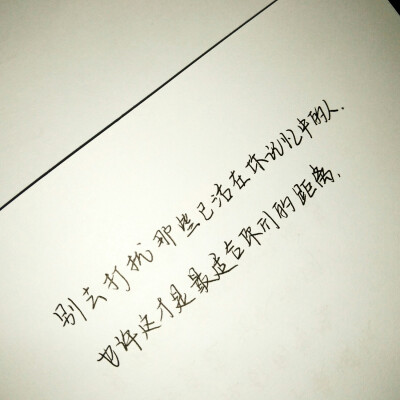 别去打扰那些已活在你记忆中的人.
也许这才是最适合你们的距离.